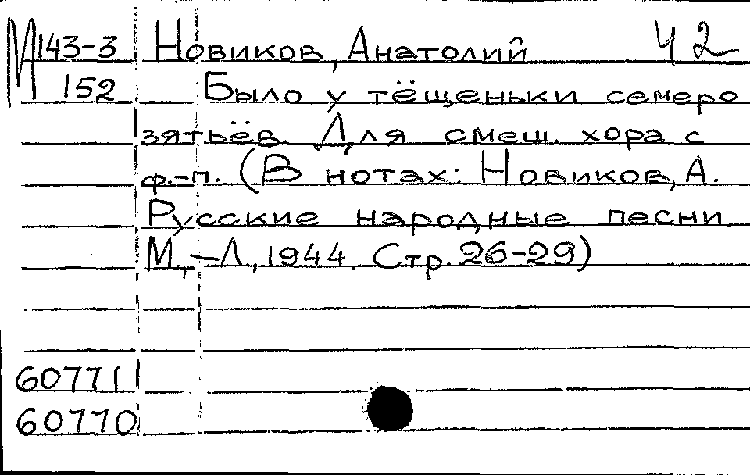 М 143-3 Новиков, Анатолий Ч2
152 Было у тёщеньки семеро
зятьёв. Для смеш. хора с
ф.-п. (В нотах: Новиков, А.
Русские народные песни
М.,-Л., 1944. Стр. 26-29)
607711
60770